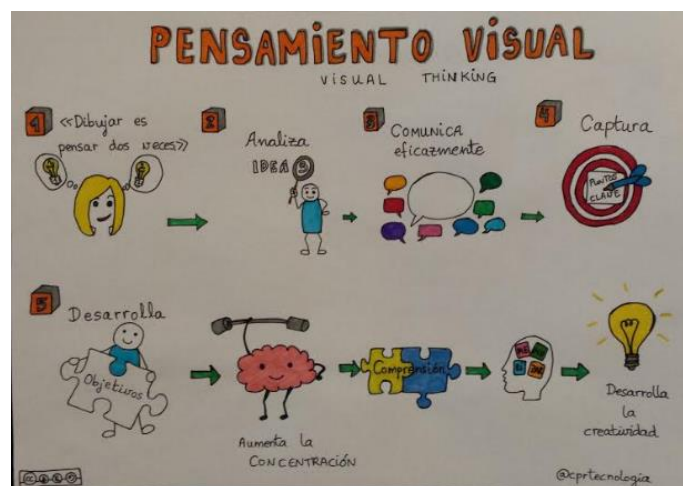 PENSAMIENTO VISUAL
VISUAL THINKING
1
«Dibujar es
pensar dos veces»
2
Analiza
IDEA
3
COMUNICA
eficazmente
4
Captura
PUNTOS
CLAVE
5
Desarrolla
Objetivos
Aumenta la
CONCENTRACIÓN
Comprensión
Desarrolla
la
creatividad
@cprtecnologia